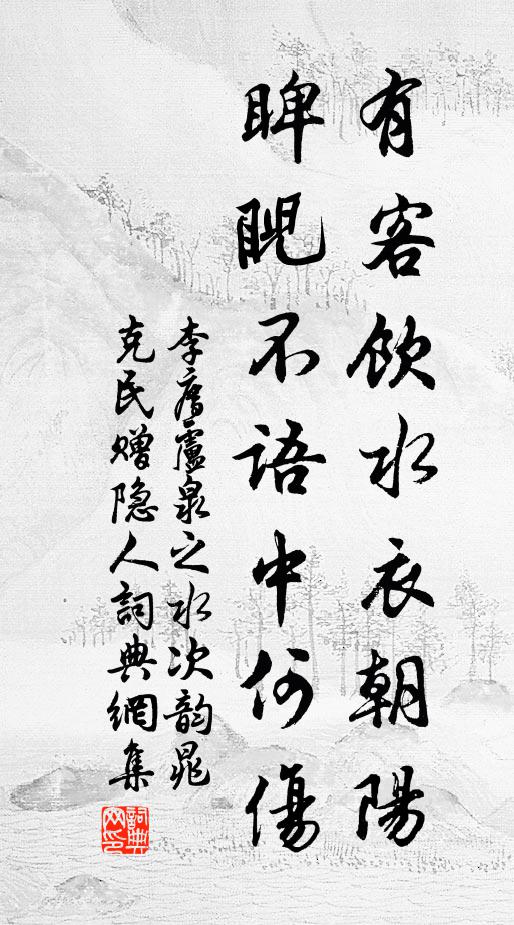 有客飲水衣朝陽
睥睨不語中何傷
李廌靈泉之水次韵晁
克民赠隐人詞典網集
詞典网印